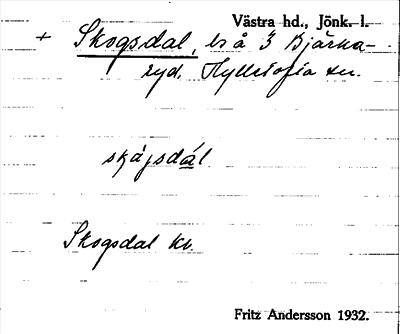 Västra hd., Jönk. l.
+ Skogsdal, ls å 3 Bjärka-
ryd. Hylletofta sn.
Skogsdal kv.
Fritz Andersson 1932.